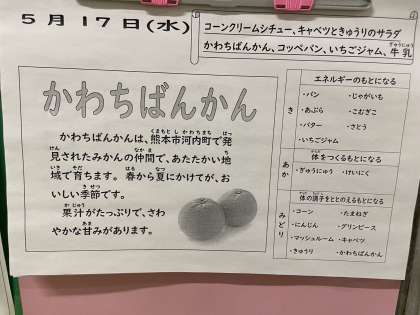 5月17日(水)
コーンクリームシチュー、キャベツときゅうりのサラダ
かわちばんかん、コッペパン、いちごジャム、牛乳
かわちばんかん
かわちばんかんは、熊本市河内町で発
見されたみかんの仲間で、あたたかい地
域で育ちます。春から夏にかけてが、お
いしい季節です。
果汁がたっぷりで、さわ
やかな甘みがあります。
エネルギーのもとになる
き
・パン ・じゃがいも
・あぶら ・こむぎこ
・バター ・さとう
・いちごジャム
体をつくるもとになる
あか
・ぎゅうにゅう ・けいにく
体の調子をととのえるもとになる
みどり
・コーン ・たまねぎ
・にんじん ・グリンピース
・マッシュルーム ・キャベツ
・きゅうり ・かわちばんかん